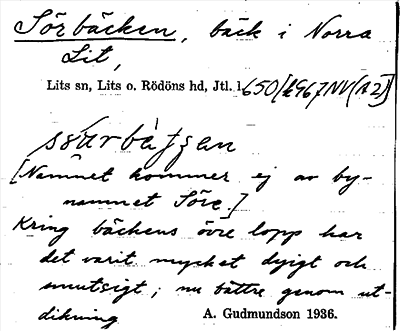 Sörbäcken, bäck i Norra
Lit,
Lits sn, Lits o. Rödöns hd, Jtl. 1
[Namnet kommer ej av by-
namnet Söre.]
Kring bäckens övre lopp har
det varit mycket dyigt och
smutsigt; nu bättre genom ut-
dikning
A. Gudmundson 1936.